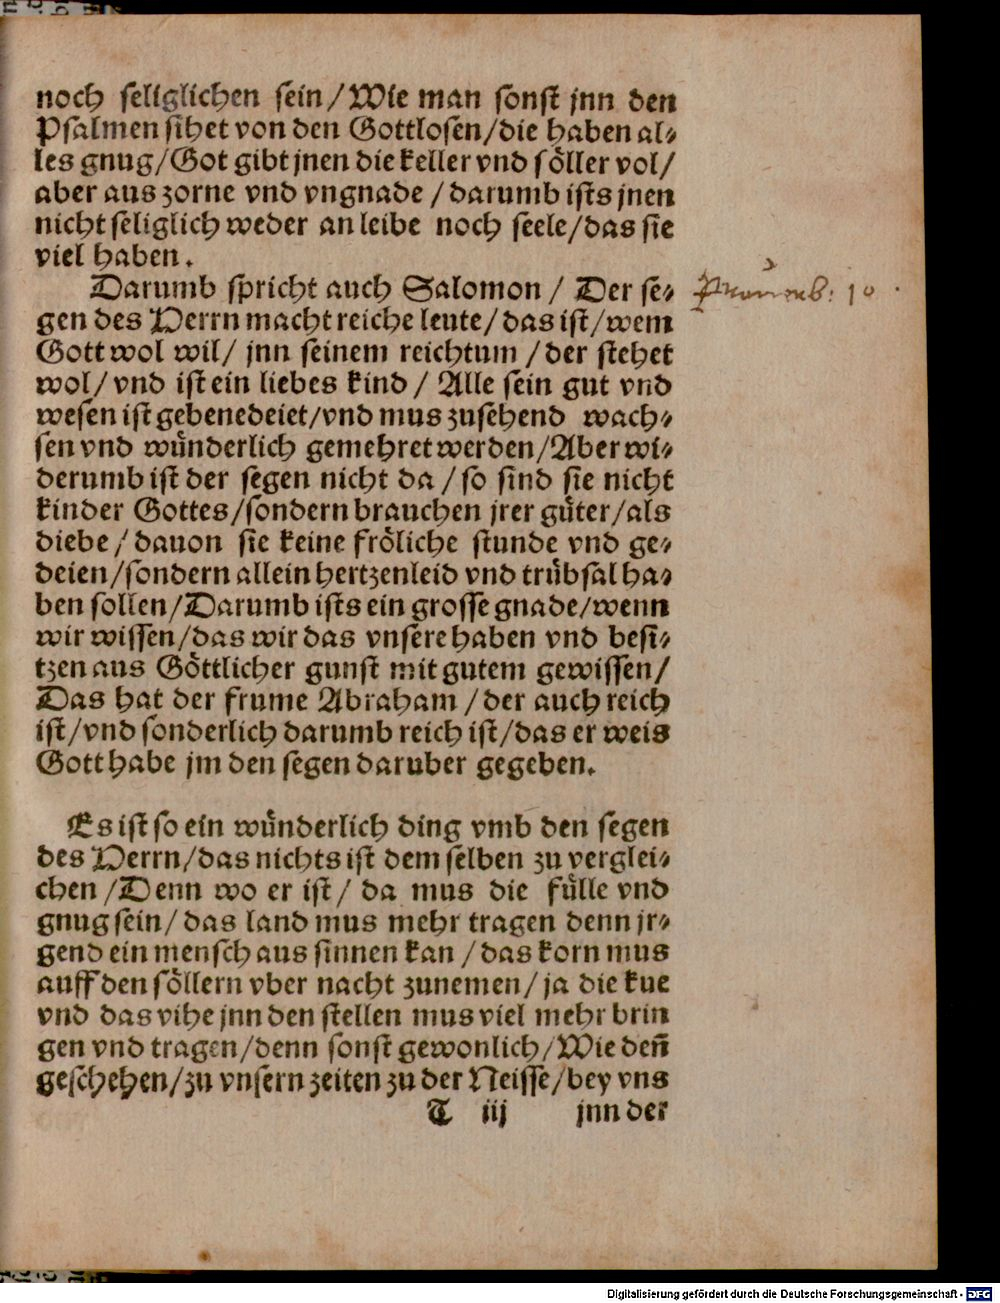 noch seliglichen sein/Wie man sonst jnn den
Psalmen sihet von den Gottlosen/die haben al⸗
les gnug/Got gibt jnen die keller vnd söller vol/
aber aus zorne vnd vngnade/darumb ists jnen
nicht seliglich weder an leibe noch seele/das sie
viel haben.
Darumb spricht auch Salomon/Der se⸗
Prouerb: 10.
gen des Herrn macht reiche leute/das ist/wem
Gott wol wil/jnn seinem reichtum/der stehet
wol/vnd ist ein liebes kind/Alle sein gut vnd
wesen ist gebenedeiet/vnd mus zusehend wach⸗
sen vnd wünderlich gemehret werden/Aber wi⸗
derumb ist der segen nicht da/so sind sie nicht
kinder Gottes/sondern brauchen jrer güter/als
diebe/dauon sie keine fröliche stunde vnd ge⸗
deien/sondern allein hertzenleid vnd trübsal ha⸗
ben sollen/Darumb ists ein grosse gnade/wenn
wir wissen/das wir das vnsere haben vnd besi⸗
tzen aus Göttlicher gunst mit gutem gewissen/
Das hat der frume Abraham/der auch reich
ist/vnd sonderlich darumb reich ist/das er weis
Gott habe jm den segen daruber gegeben.
Es ist so ein wünderlich ding vmb den segen
des Herrn/das nichts ist dem selben zu verglei⸗
chen/Denn wo er ist/da mus die fülle vnd
gnug sein/das land mus mehr tragen denn jr⸗
gend ein mensch aus sinnen kan/das korn mus
auff den söllern vber nacht zunemen/ja die kue
vnd das vihe jnn den stellen mus viel mehr brin
gen vnd tragen/denn sonst gewonlich/Wie deñ
geschehen/zu vnsern zeiten zu der Neisse/bey vns
T iij jnn der
Digitalisierung gefördert durch die Deutsche Forschungsgemeinschaft - DFG